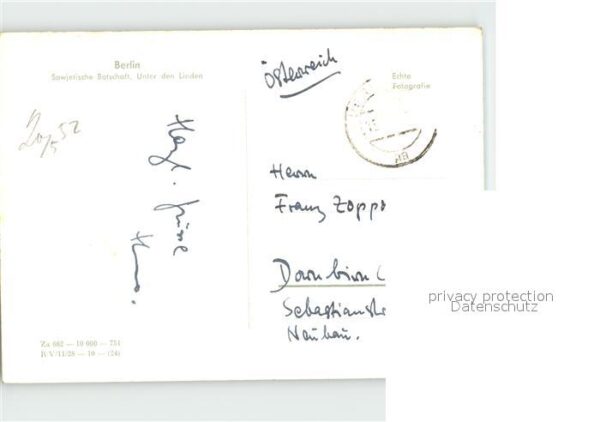 Berlin
Sowjetische Botschaft, Unter den Linden
Echte
Fotografie
Österreich
Herzl. Grüße
Herrn
Franz Zoppo
Dornbirn
Sebastianstr
Neubau.
Za 682 — 10 000 — 754
R V/11/28 — 10 — (24)
privacy protection
Datenschutz